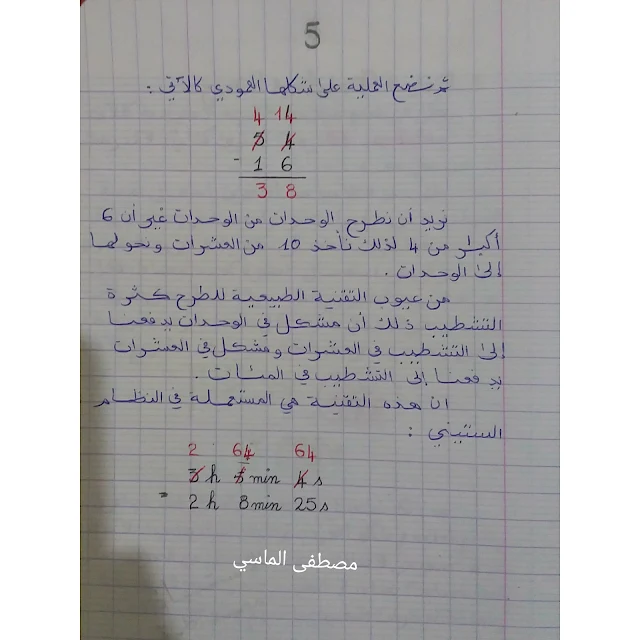 5
ثم نضع العملية على شكلها العمودي كالآتي :
4 14
5 4
- 1 6
3 8
نريد أن نطرح الوحدات من الوحدات غير أن 6
أكبر من 4 لذلك نأخذ 10 من العشرات ونحولها
إلى الوحدات .
من عيوب التقنية الطبيعية للطرح كثرة
التشطيب ذلك أن مشكل في الوحدات يدفعنا
إلى التشطيب في العشرات ومشكل في العشرات
يدفعنا إلى التشطيب في المئات .
ان هذه التقنية هي المستعملة في النظام
الستيني :
2 64 64
3 h 5 min 4 s
- 2 h 8 min 25 s
مصطفى الماسي